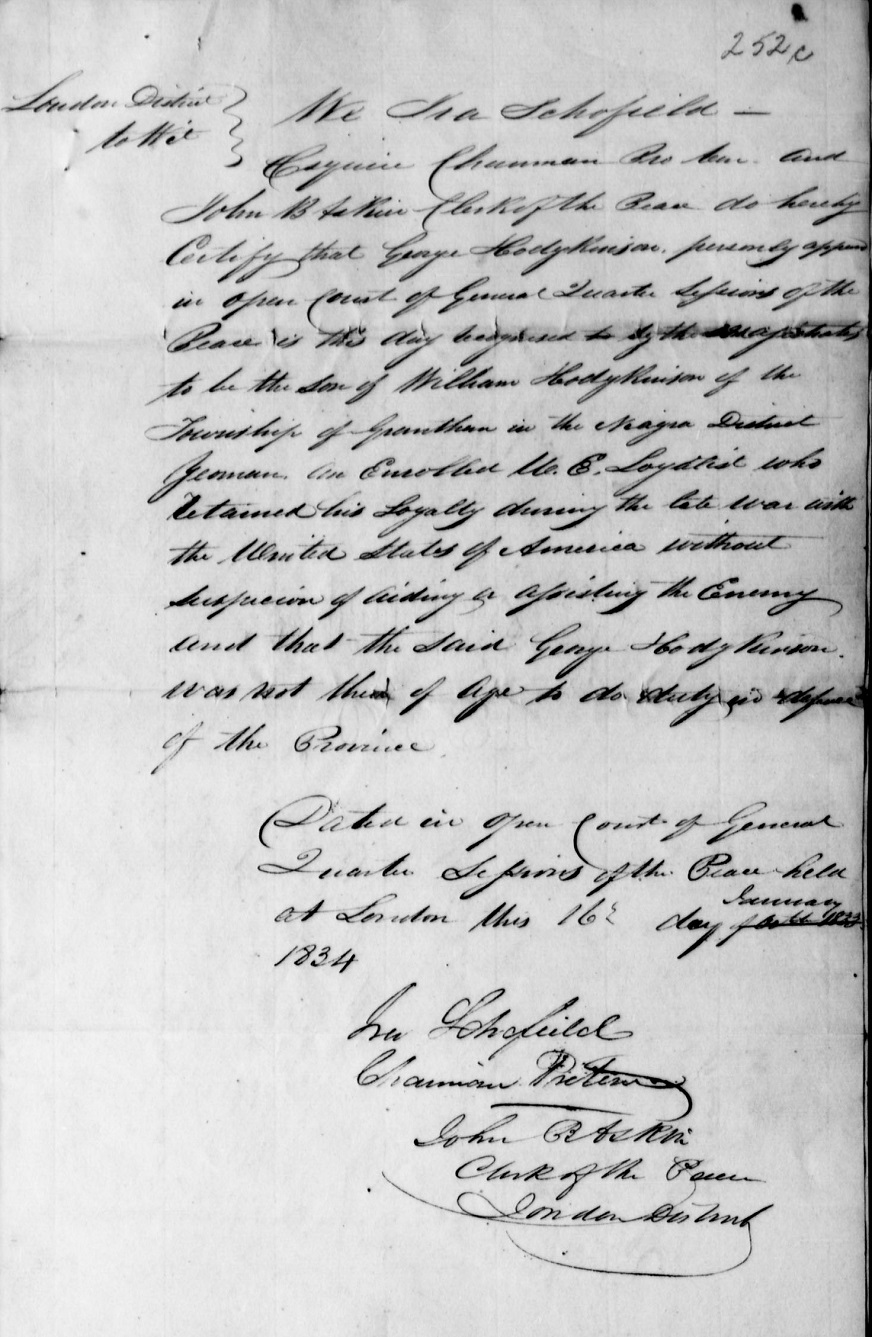 252c
London District
to Wit
We Ira Schofield —
Esquire Chairman Pro tem. and
John B Askin Clerk of the Peace do hereby
Certify that George Hodgkinson. personly appear
in open Court of General Quarter Sessions of the
Peace is this day recognised to by the Magistrates
to be the Son of William Hodgkinson of the
Township of Granthan in the Niagra District
Yeoman. an Enrolled U. E. Loyalist who
retained his Loyalty during the late war with
the United States of America without
suspicion of aiding or assisting the Enemy
and that the said George Hodgkinson.
was not then of Age to do duty in defence
of the Province.
Dated in open Court of General
Quarter Sessions of the Peace held
January
at London this 16th day of 1833
1834
Ira Schofield
Chairman Protem
John B Askin
Clerk of the Peace
London District